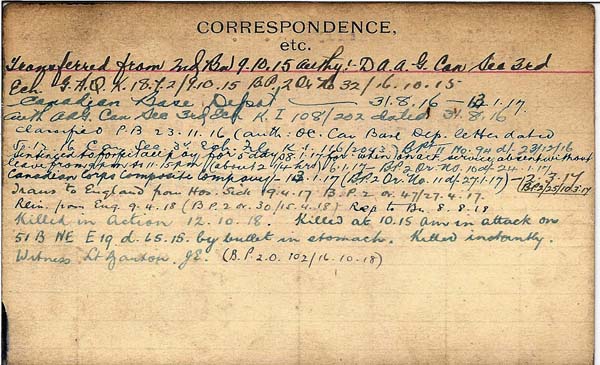 CORRESPONDENCE,
etc.
Transferred from 2nd Bn 9.10.15 Authy:- D.A.A.G. Can Sec 3rd
Ech. G.H.Q. K.18.7.2/9.10.15 B.P.2 Or No 32/16.10.15
Canadian Base Depot — 31.8.16 — 13.1.17.
Auth AAG. Can Sec 3rd Ech K.I 108/202 dated 31.8.16
Classified P.B 23.11.16 (auth: OC. Can Base Dep. letter dated
17.12.16 Can. Sec. 3rd Ech. K.1.116/2043) BPt II No. 94 d/. 23/12/16
Sentenced to forfeit pay for 5 days 8.1.17 for: when on act. service absent without
leave from 11.15 pm 6.1.17 B.P.2 Or. No. 10 d/- 24.1.17)
Canadian Corps Composite Company - 13.1.17 (B.P.2 Or. No. 11 d/- 27.1.17) - 3.17
(BP2/25/10.3.17
Trans to England from Hos. Sick 19.4.17. B.P.2 or 47/27.4.17.
Rein. from Eng. 9.4.18 (B.P.2 or. 30/15.4.18) Rep to Bn. 8.8.18
Killed in Action 12.10.18. Killed at 10.15 am in attack on
51B NE E 19 d. 65.15. by bullet in stomach. Killed instantly.
Witness Lt J.E. (B.P.2.O. 102/16.10.18)